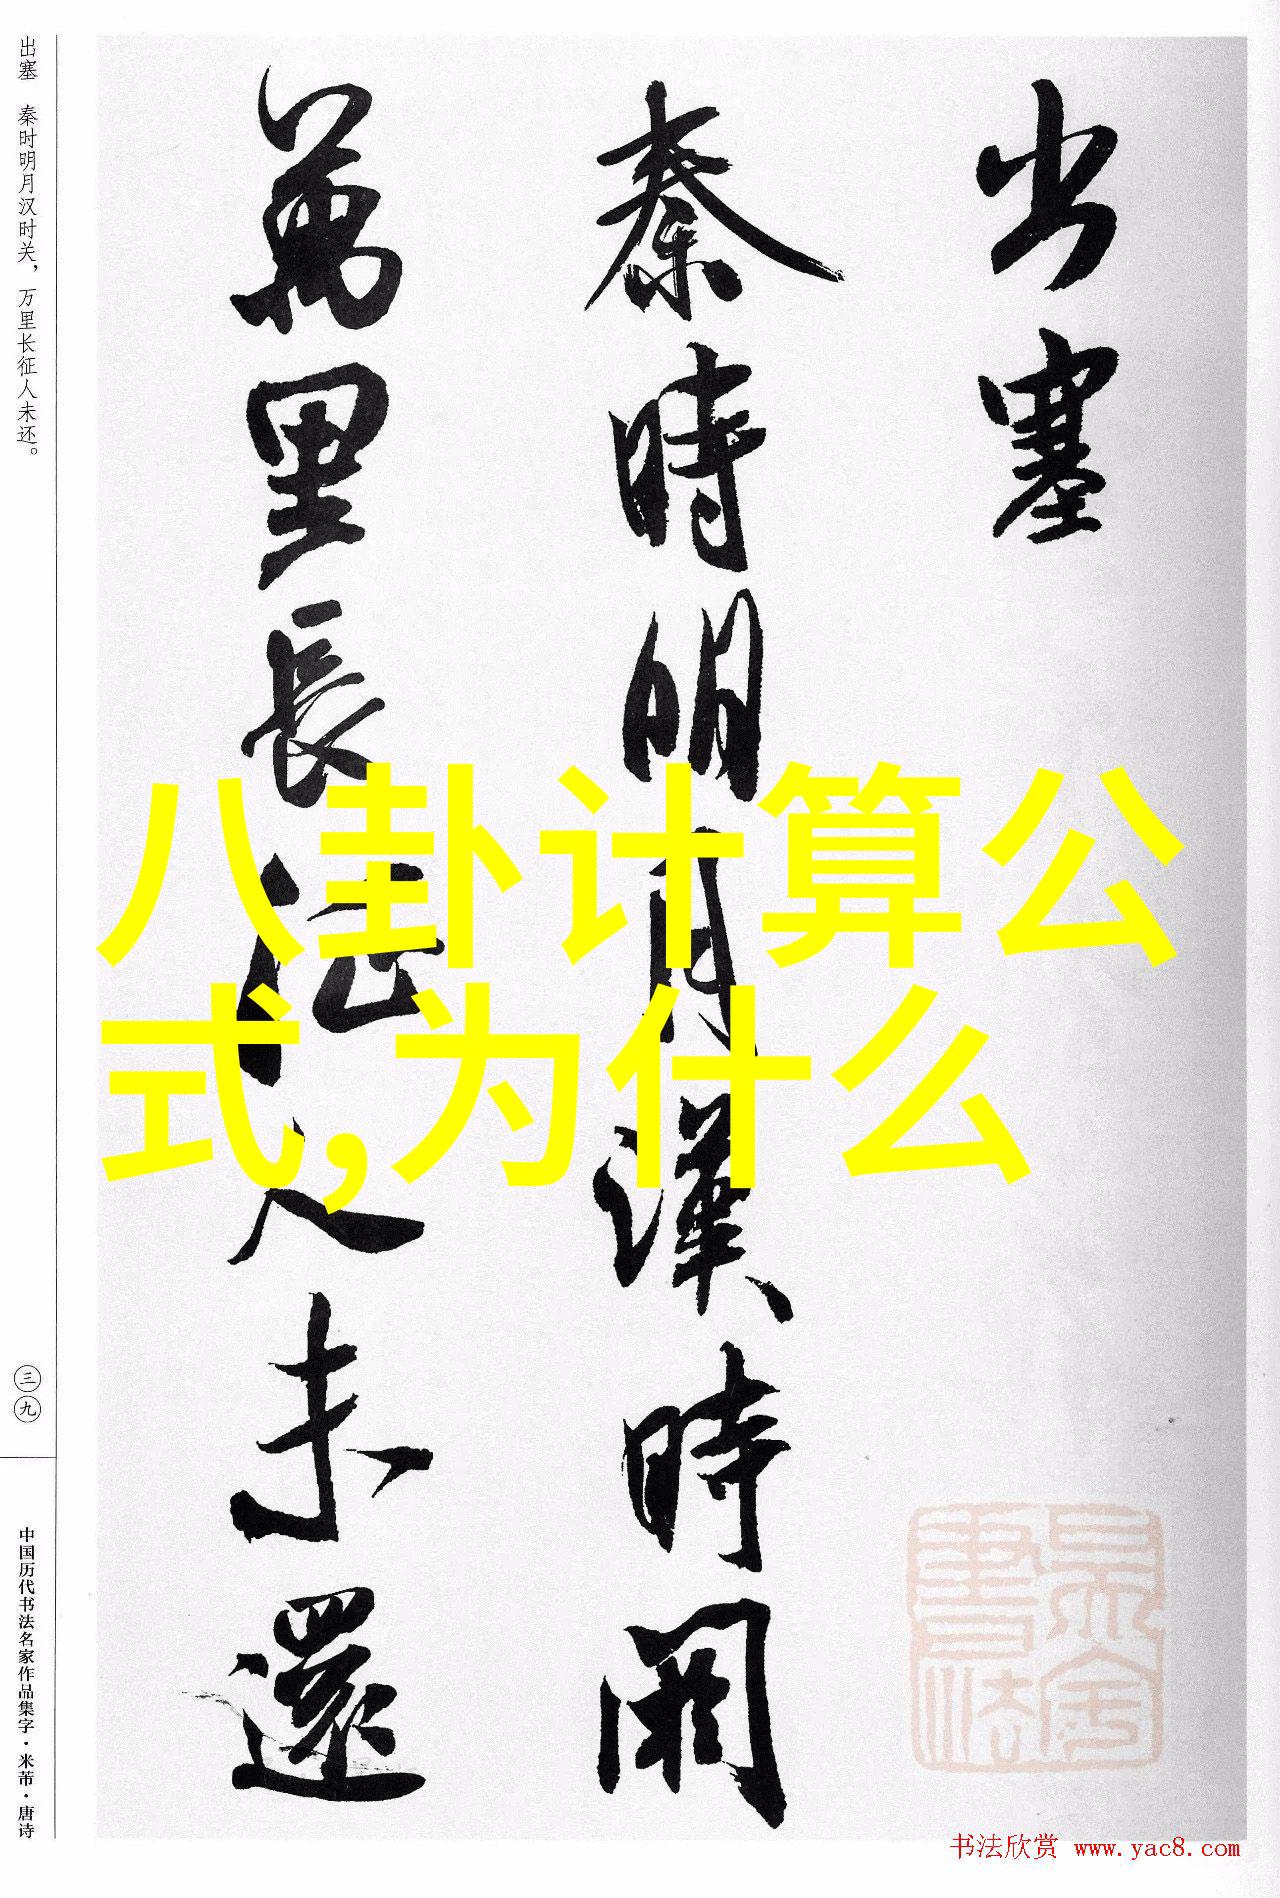 出塞
秦時明月漢時関
萬里長征人未還
八卦计算公
式,为什么
出塞 秦时明月汉时关，万里长征人未还。
三九
中国历代书法名家作品集字·米芾·唐诗
书法欣赏 www.yac8.com